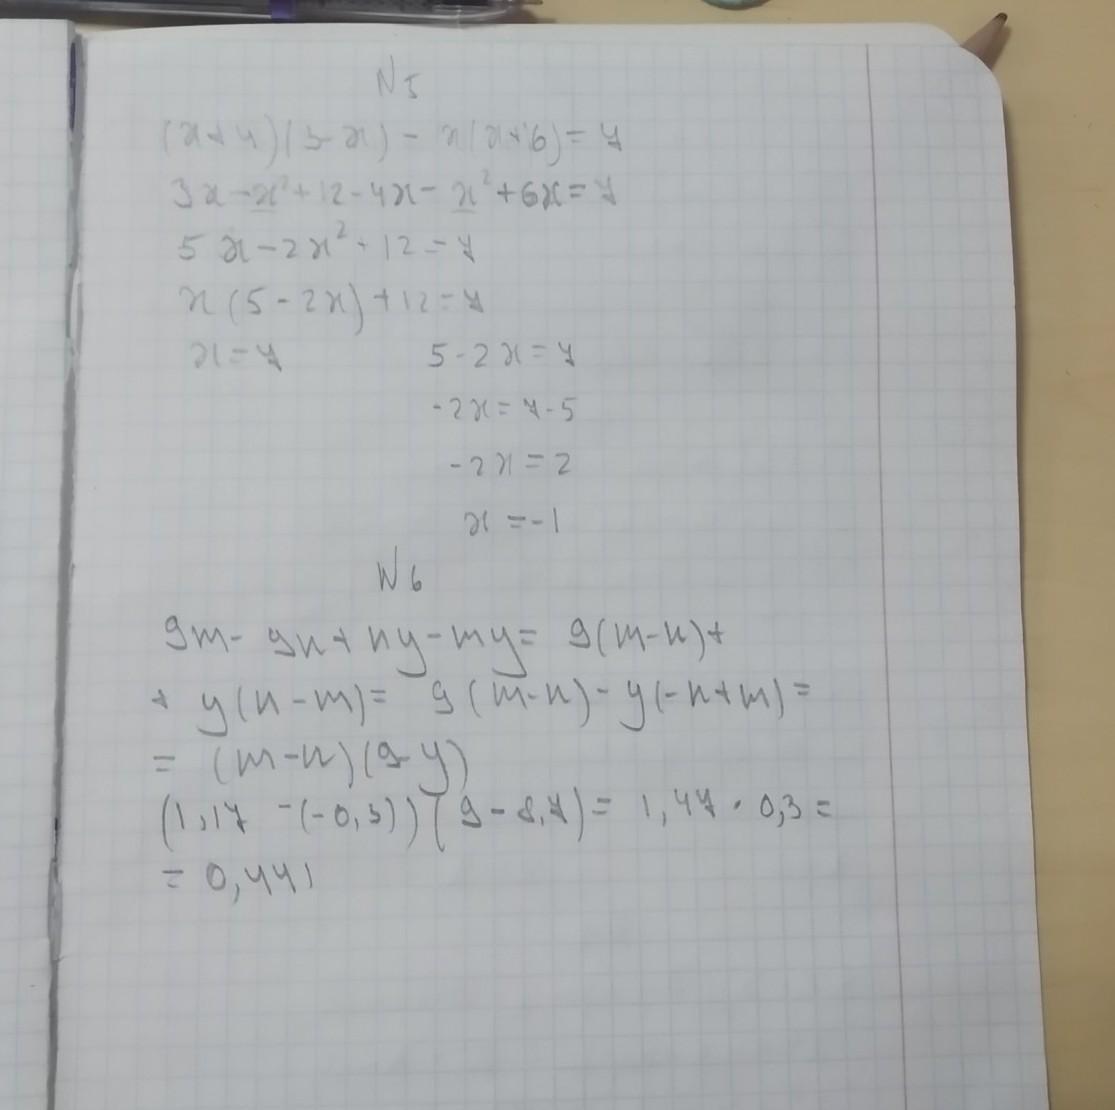 N5
(x+4)(3-x) - x(x+6) = 7
3x - x² + 12 - 4x - x² + 6x = 7
5x - 2x² + 12 = 7
x(5 - 2x) + 12 = 7
x = 7 5 - 2x = 7
-2x = 7 - 5
-2x = 2
x = -1
N6
9m - 9n + ny - my = 9(m-n) +
+ y(n-m) = 9(m-n) - y(-n+m) =
= (m-n)(9-y)
(1,17 - (-0,3))(9 - 8,7) = 1,47 · 0,3 =
= 0,441